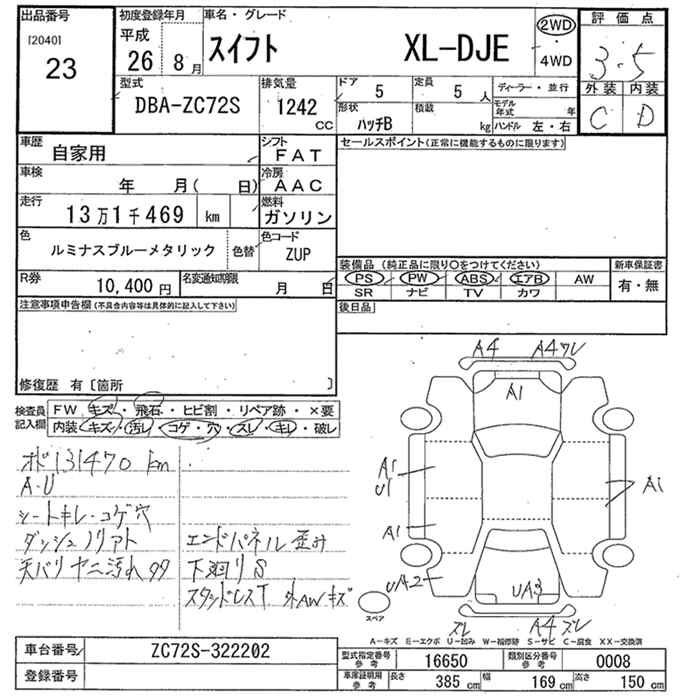 出品番号
[2040]
23
初度登録年月
平成
26 8月
車名・グレード
スイフト XL-DJE
2WD
・
4WD
評価点
3.5
外装 内装
C D
型式
DBA-ZC72S
排気量
1242 CC
ドア 5
定員 5 人
ディーラー・並行
形状 ハッチB
積載 kg
モデル年式 年
ハンドル 左・右
車歴
自家用
シフト
FAT
セールスポイント(正常に機能するものに限ります)
車検
年 月( 日)
冷房
AAC
走行
13万1千469 km
燃料
ガソリン
色
ルミナスブルーメタリック
色替
色コード
ZUP
装備品(純正品に限り○をつけてください)
新車保証書
PS PW ABS エアB AW
SR ナビ TV カワ
有・無
R券
10,400円
名変通知期限
月 日
後日品
注意事項申告欄(不具合内容等は具体的に記入して下さい)
修復歴 有〔箇所 〕
検査員記入欄
FW キズ・飛石・ヒビ割・リペア跡・×要
内装 キズ・汚レ・コゲ・穴・スレ・キレ・破レ
131470 km
A-U
シートキレ・コゲ穴
ダッシュノリアト
天バリ ヤニ汚れ
エンドパネル 歪み
下廻りS
スタッドレスT 外AWキズ
A4 A4スレ
A1
A1
U1
A1
A1
UA2
UA3
スレ A4 スレ
スペア
A-キズ E-エクボ U-凹み W-補修跡 S-サビ C-腐食 XX-交換済
車台番号
ZC72S-322202
登録番号
型式指定番号
参考
16650
類別区分番号
参考
0008
車庫証明用
参考
長さ 385 cm
幅 169 cm
高さ 150 cm